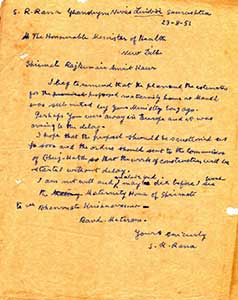 S. R. Rana Gyanodaya Nivas Limbdi Saurashtra
23-8-51
To The Honourable Minister of Health
New Delhi
Shrimati Rajkumari Amrit Kaur
I beg to remind that the plan and the estimates
for the proposed maternity home at
was submitted to your Ministry long ago.
Perhaps you were away in Europe and it was
owing to the delay.
I hope that the project should be sanctioned as
as soon and the orders should sent to the commissioner
of so that the work of construction will be
started without delay.
I am not well and may die before I see
the Maternity Home of Shrimati
Bande Mataram.
Yours sincerely
S. R. Rana